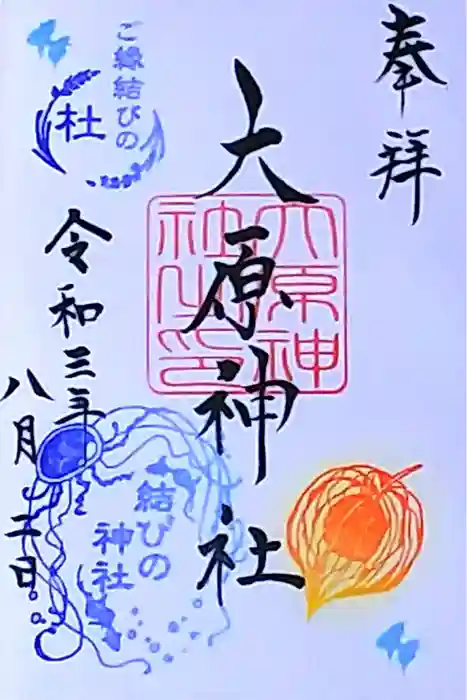 奉拝
大原神社
大原神社之印
ご縁結びの
杜
令和三年
八月二日
結びの
神社